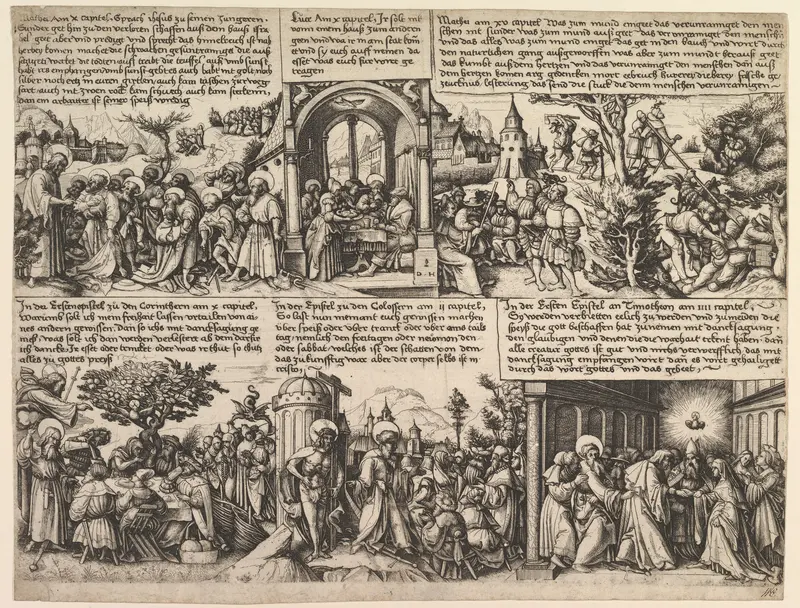 Mathei Am x capitel. Sprach ihesus zu seinen Jungeren.
Sunder get hin zu den verloren schaffen aus dem haus isra
hel get aber und predigt und sprecht das himelreich ist nach
herbey komen machet die schwachen gesunt rainiget die auß
setzigen wecket die todten auff treibt die teuffel auß umb sunst
habt irs empfangen umb sunst gebetz auch habt nit golt noch
silber noch ertz in euern girtlen auch kain taschen zur weg
fart auch nit zwen rock kain schuech auch kain stecken
dan ein arbaiter ist seiner speiß wirdig
Luce Am x capitel. Ir solt nit
von einem hauß zum anderen
gen und wa ir in ain stat kom
et und sy euch auff nemen da
esset was euch für wirt ge
tragen
Mathei am xv capitel Was zum mund einget das verunrainiget den men
schen nit sunder was zum mund auß get das verunrainiget den menschen
und das alles was zum mund einget das get in den bauch und wirt durch
den naturlichen gang außgeworffen was aber zum mund heraus geet
das kumbt auß dem hertzen und das verunrainiget den menschen dan auß
dem hertzen komen arg gedencken mort eebruch hurerey dieberey falsche ge
zeucknus lesterung das send die stuck die dem menschen verunrainigen
D H
In der Ersten epistel zu den Corinthern am x capitel.
Warumb solt ich mein freihait lassen urtailen von ai
nes andern gewissen. Dan so ichs mit dancksagung ge
niuß was solt ich dan werden verlestert ob dem darfür
ich dancke Ir esset oder trincket oder was ir thut so thutz
alles zu gottes preiß
In der Epistel zu den Colossern am ii capitel.
So last nun niemant euch gewissen machen
uber speiß oder uber tranck oder uber ains tails
tag nemlich den feirtagen oder neumon den
oder sabbat wolches ist der schatten von dem
das zukunfftig war aber der cörper selbs ist in
cristo
In der Ersten Epistel an Timotheon am iiii capitel
Sy werden verbietten eelich zu werden und zu meiden die
speiß die got beschaffen hat zu nemen mit dancksagung
den glaubigen und denen die die warhait erkent haben dan
alle creatur gottes ist gut und nichts verwerfflich das mit
dancksagung empfangen wirt dan es wirt gehailiget
durch das wort gottes und das gebeet